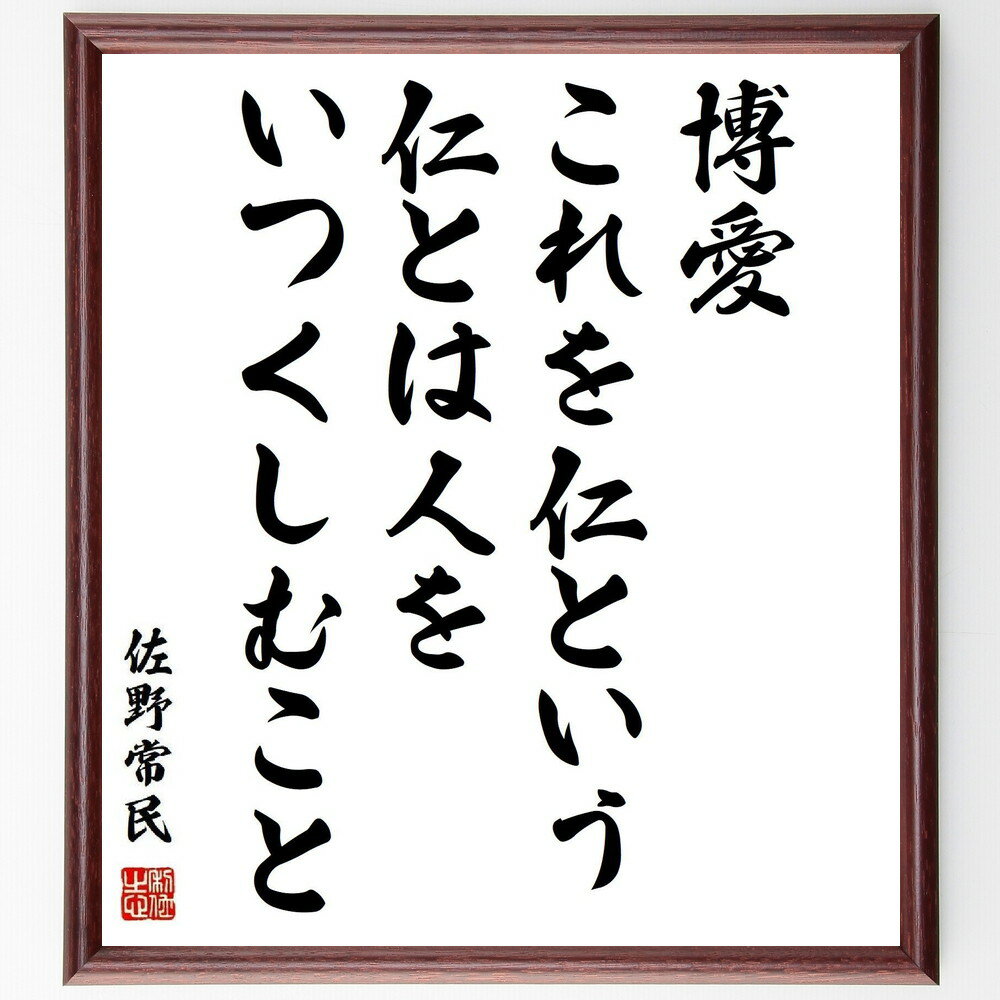 博愛
これを仁という
仁とは人を
いつくしむこと
佐野常民